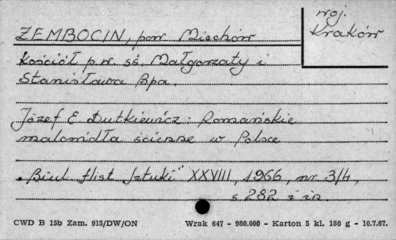 woj.
Kraków
ZEMBOCIN, pow. Miechów
Kościół p.w. śś. Małgorzaty i
Stanisława Bpa.
Józef E Dutkiewicz: Romańskie
malowidła ścienne w Polsce
"Biul. Hist. Sztuki" XXVIII, 1966, nr. 3/4,
s. 282 i in.
CWD B 15b Zam. 915/DW/ON Wrak 647 - 980.000 - Karton 5 kl. 180 g - 10.7.67.